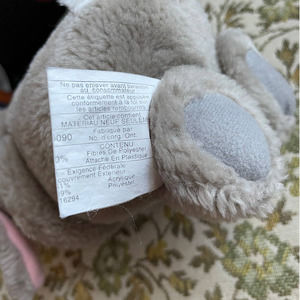 Ne pas enlever avant livraison
au consommateur
Cette étiquette est apposée
conformément à la loi sur
les articles rembourrés
Cet article contient
MATERIAU NEUF SEULEMENT
Fabriqué par
090 No d'org. Ont.
CONTENU
Fibres De Polyester
0% Attache En Plastique
Exigence Fédérale
Extérieur
1% Acrylique
9% Polyester
16294